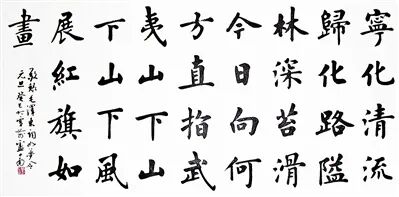 寧化清流
歸化路隘
林深苔滑
今日向何
方直指武
夷山下山
下山下風
展紅旗如
畫
敬錄毛澤東詞如夢令
元旦癸巳